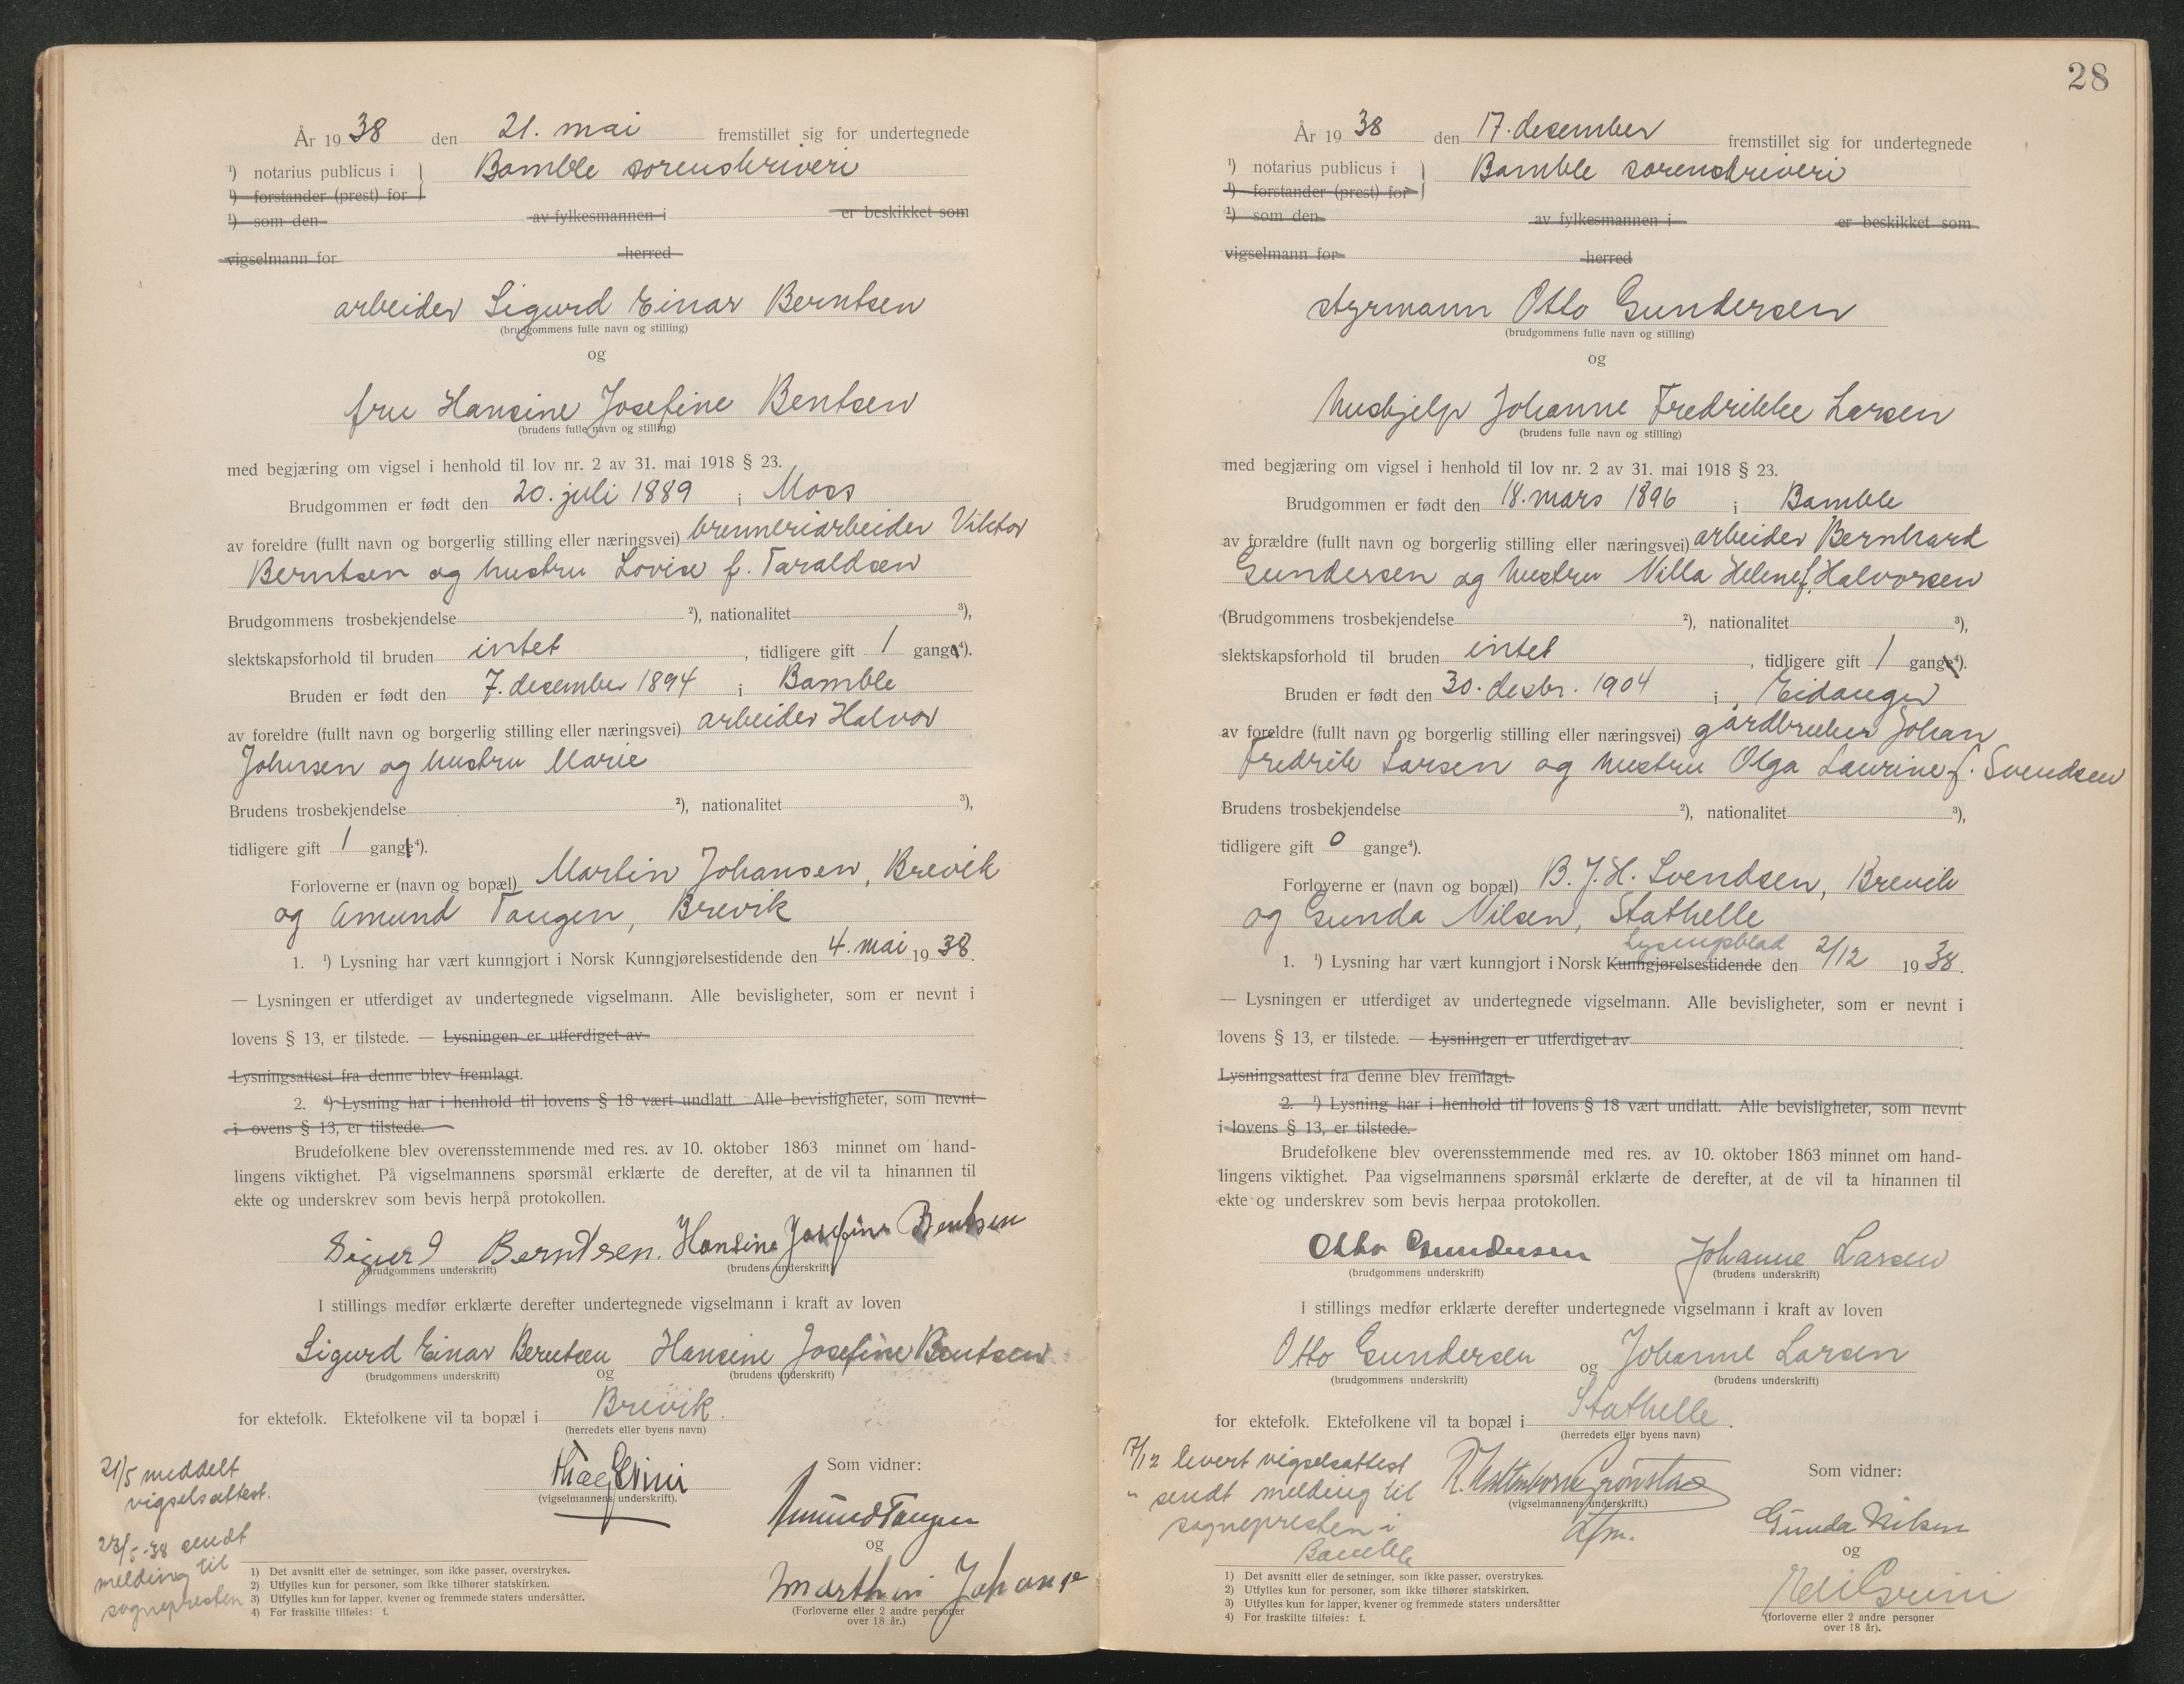 År 1938 den 21. mai fremstillet sig for undertegnede
¹) notarius publicus i } Bamble sorenskriveri
¹) forstander (prest) for
¹) som den av fylkesmannen i er beskikket som
vigselmann for herred
arbeider Sigurd Einar Berntsen
(brudgommens fulle navn og stilling)
og
fru Hansine Josefine Bentsen
(brudens fulle navn og stilling)
med begjæring om vigsel i henhold til lov nr. 2 av 31. mai 1918 § 23.
Brudgommen er født den 20. juli 1889 i Moss
av foreldre (fullt navn og borgerlig stilling eller næringsvei) brenneriarbeider Viktor
Berntsen og hustru Lovise f. Taraldsen
Brudgommens trosbekjendelse ²), nationalitet ³),
slektskapsforhold til bruden intet, tidligere gift 1 gang⁴).
Bruden er født den 7. desember 1894 i Bamble
av foreldre (fullt navn og borgerlig stilling eller næringsvei) arbeider Halvor
Johnsen og hustru Marie
Brudens trosbekjendelse ²), nationalitet ³),
tidligere gift 1 gange⁴).
Forloverne er (navn og bopæl) Martin Johansen, Brevik
og Amund Tangen, Brevik
1. ¹) Lysning har vært kunngjort i Norsk Kunngjørelsestidende den 4. mai 1938.
— Lysningen er utferdiget av undertegnede vigselmann. Alle bevisligheter, som er nevnt i
lovens § 13, er tilstede. — Lysningen er utferdiget av
Lysningsattest fra denne blev fremlagt.
2. ¹) Lysning har i henhold til lovens § 18 vært undlatt. Alle bevisligheter, som nevnt
i ovens § 13, er tilstede.
Brudefolkene blev overensstemmende med res. av 10. oktober 1863 minnet om hand-
lingens viktighet. På vigselmannens spørsmål erklærte de derefter, at de vil ta hinannen til
ekte og underskrev som bevis herpå protokollen.
Sigurd Berntsen. Hansine Josefine Bentsen
(brudgommens underskrift) (brudens underskrift)
I stillings medfør erklærte derefter undertegnede vigselmann i kraft av loven
Sigurd Einar Berntsen og Hansine Josefine Bentsen
(brudgommens underskrift) (brudens underskrift)
for ektefolk. Ektefolkene vil ta bopæl i Brevik.
(herredets eller byens navn)
21/5 meddelt
vigselsattest.
(vigselmannens underskrift).
Som vidner:
Amund Tangen
og
Marthin Johanse
(Forloverne eller 2 andre personer
over 18 år.)
23/5-38 sendt
melding til
sognepresten
1) Det avsnitt eller de setninger, som ikke passer, overstrykes.
2) Utfylles kun for personer, som ikke tilhører statskirken.
3) Utfylles kun for lapper, kvener og fremmede staters undersåtter.
4) For fraskilte tilføies: f.
28
År 1938 den 17. desember fremstillet sig for undertegnede
¹) notarius publicus i } Bamble sorenskriveri
¹) forstander (prest) for
¹) som den av fylkesmannen i er beskikket som
vigselmann for herred
styrmann Otto Gundersen
(brudgommens fulle navn og stilling)
og
hushjelp Johanne Fredrikke Larsen
(brudens fulle navn og stilling)
med begjæring om vigsel i henhold til lov nr. 2 av 31. mai 1918 § 23.
Brudgommen er født den 18. mars 1896 i Bamble
av forældre (fullt navn og borgerlig stilling eller næringsvei) arbeider Bernhard
Gundersen og hustru Villa Helene f. Halvorsen
(Brudgommens trosbekjendelse ²), nationalitet ³),
slektskapsforhold til bruden intet, tidligere gift 1 gange⁴).
Bruden er født den 30. desbr. 1904 i Eidanger
av foreldre (fullt navn og borgerlig stilling eller næringsvei) gårdbruker Johan
Fredrik Larsen og hustru Olga Laurine f. Svendsen
Brudens trosbekjendelse ²), nationalitet ³),
tidligere gift 0 gange⁴).
Forloverne er (navn og bopæl) B. J. H. Svendsen, Brevik
og Gunda Nilsen, Stathelle
Lysingsblad
1. ¹) Lysning har vært kunngjort i Norsk Kunngjørelsestidende den 2/12 1938.
— Lysningen er utferdiget av undertegnede vigselmann. Alle bevisligheter, som er nevnt i
lovens § 13, er tilstede. — Lysningen er utferdiget av
Lysningsattest fra denne blev fremlagt.
2. ¹) Lysning har i henhold til lovens § 18 vært undlatt. Alle bevisligheter, som nevnt
i lovens § 13, er tilstede.
Brudefolkene blev overensstemmende med res. av 10. oktober 1863 minnet om hand-
lingens viktighet. Paa vigselmannens spørsmål erklærte de derefter, at de vil ta hinannen til
ekte og underskrev som bevis herpaa protokollen.
Otto Gundersen Johanne Larsen
(brudgommens underskrift) (brudens underskrift)
I stillings medfør erklærte derefter undertegnede vigselmann i kraft av loven
Otto Gundersen og Johanne Larsen
(brudgommens underskrift) (brudens underskrift)
for ektefolk. Ektefolkene vil ta bopæl i Stathelle.
(herredets eller byens navn)
17/12 levert vigselsattest
" sendt melding til
sognepresten i
Bamble
(vigselmannens underskrift.)
Som vidner:
Gunda Nilsen
og
(forloverne eller 2 andre personer
over 18 år).
1) Det avsnitt eller de setninger, som ikke passer, overstrykes.
2) Utfylles kun for personer, som ikke tilhører statskirken.
3) Utfylles kun for lapper, kvener og fremmede staters undersåtter
4) For fraskilte tilføies: f.